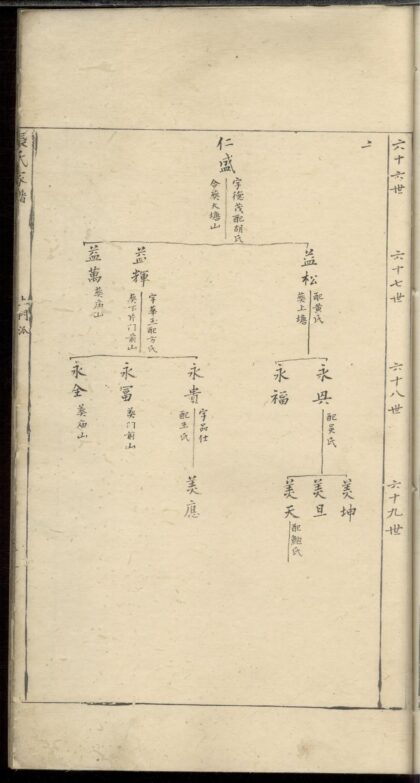 上
六十六世
六十七世
六十八世
六十九世
仁盛
字德茂配胡氏
合葬大塘山
益松
配黄氏
葬上塘
益輝
字華玉配方氏
葬下於門前山
益萬
葬庙山
永興
配吴氏
永福
永貴
字品仕
配王氏
永富
葬门前山
永全
葬庙山
美坤
美旦
美天
配鲍氏
美應
張氏家譜
上门派